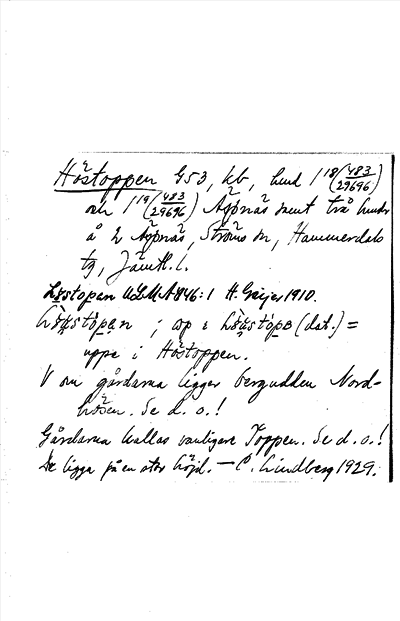 Höstoppen G53, kb, hmd 1 18 (483/29696)
och 1 19 (483/29696) Äspnäs samt två hmdr
å 2 Äspnäs, Ströms sn, Hammerdals
tg, Jämtl. l.
Löstopen ULMA 846:1 H. Geijer 1910.
; op i (dat.) =
uppe i Höstoppen.
V om gårdarna ligger bergudden Nord-
hösen. Se d. o.!
Gårdarna kallas vanligare Toppen. Se d. o.!
De ligga på en stor höjd. — C. Lindberg 1929.